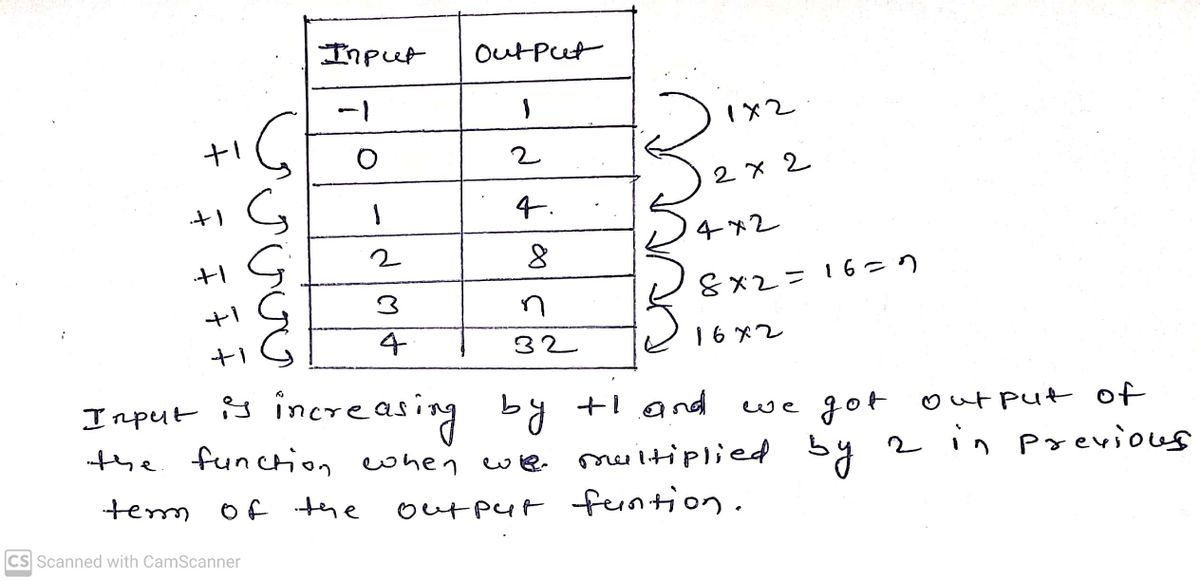 Input Output
-1 1 1×2
+1 0 2 2×2
+1 1 4. 4×2
+1 2 8 8×2=16=n
+1 3 n 16×2
+1 4 32
Input is increasing by +1 and we got output of
the function when we multiplied by 2 in previous
term of the output funtion.
CS Scanned with CamScanner